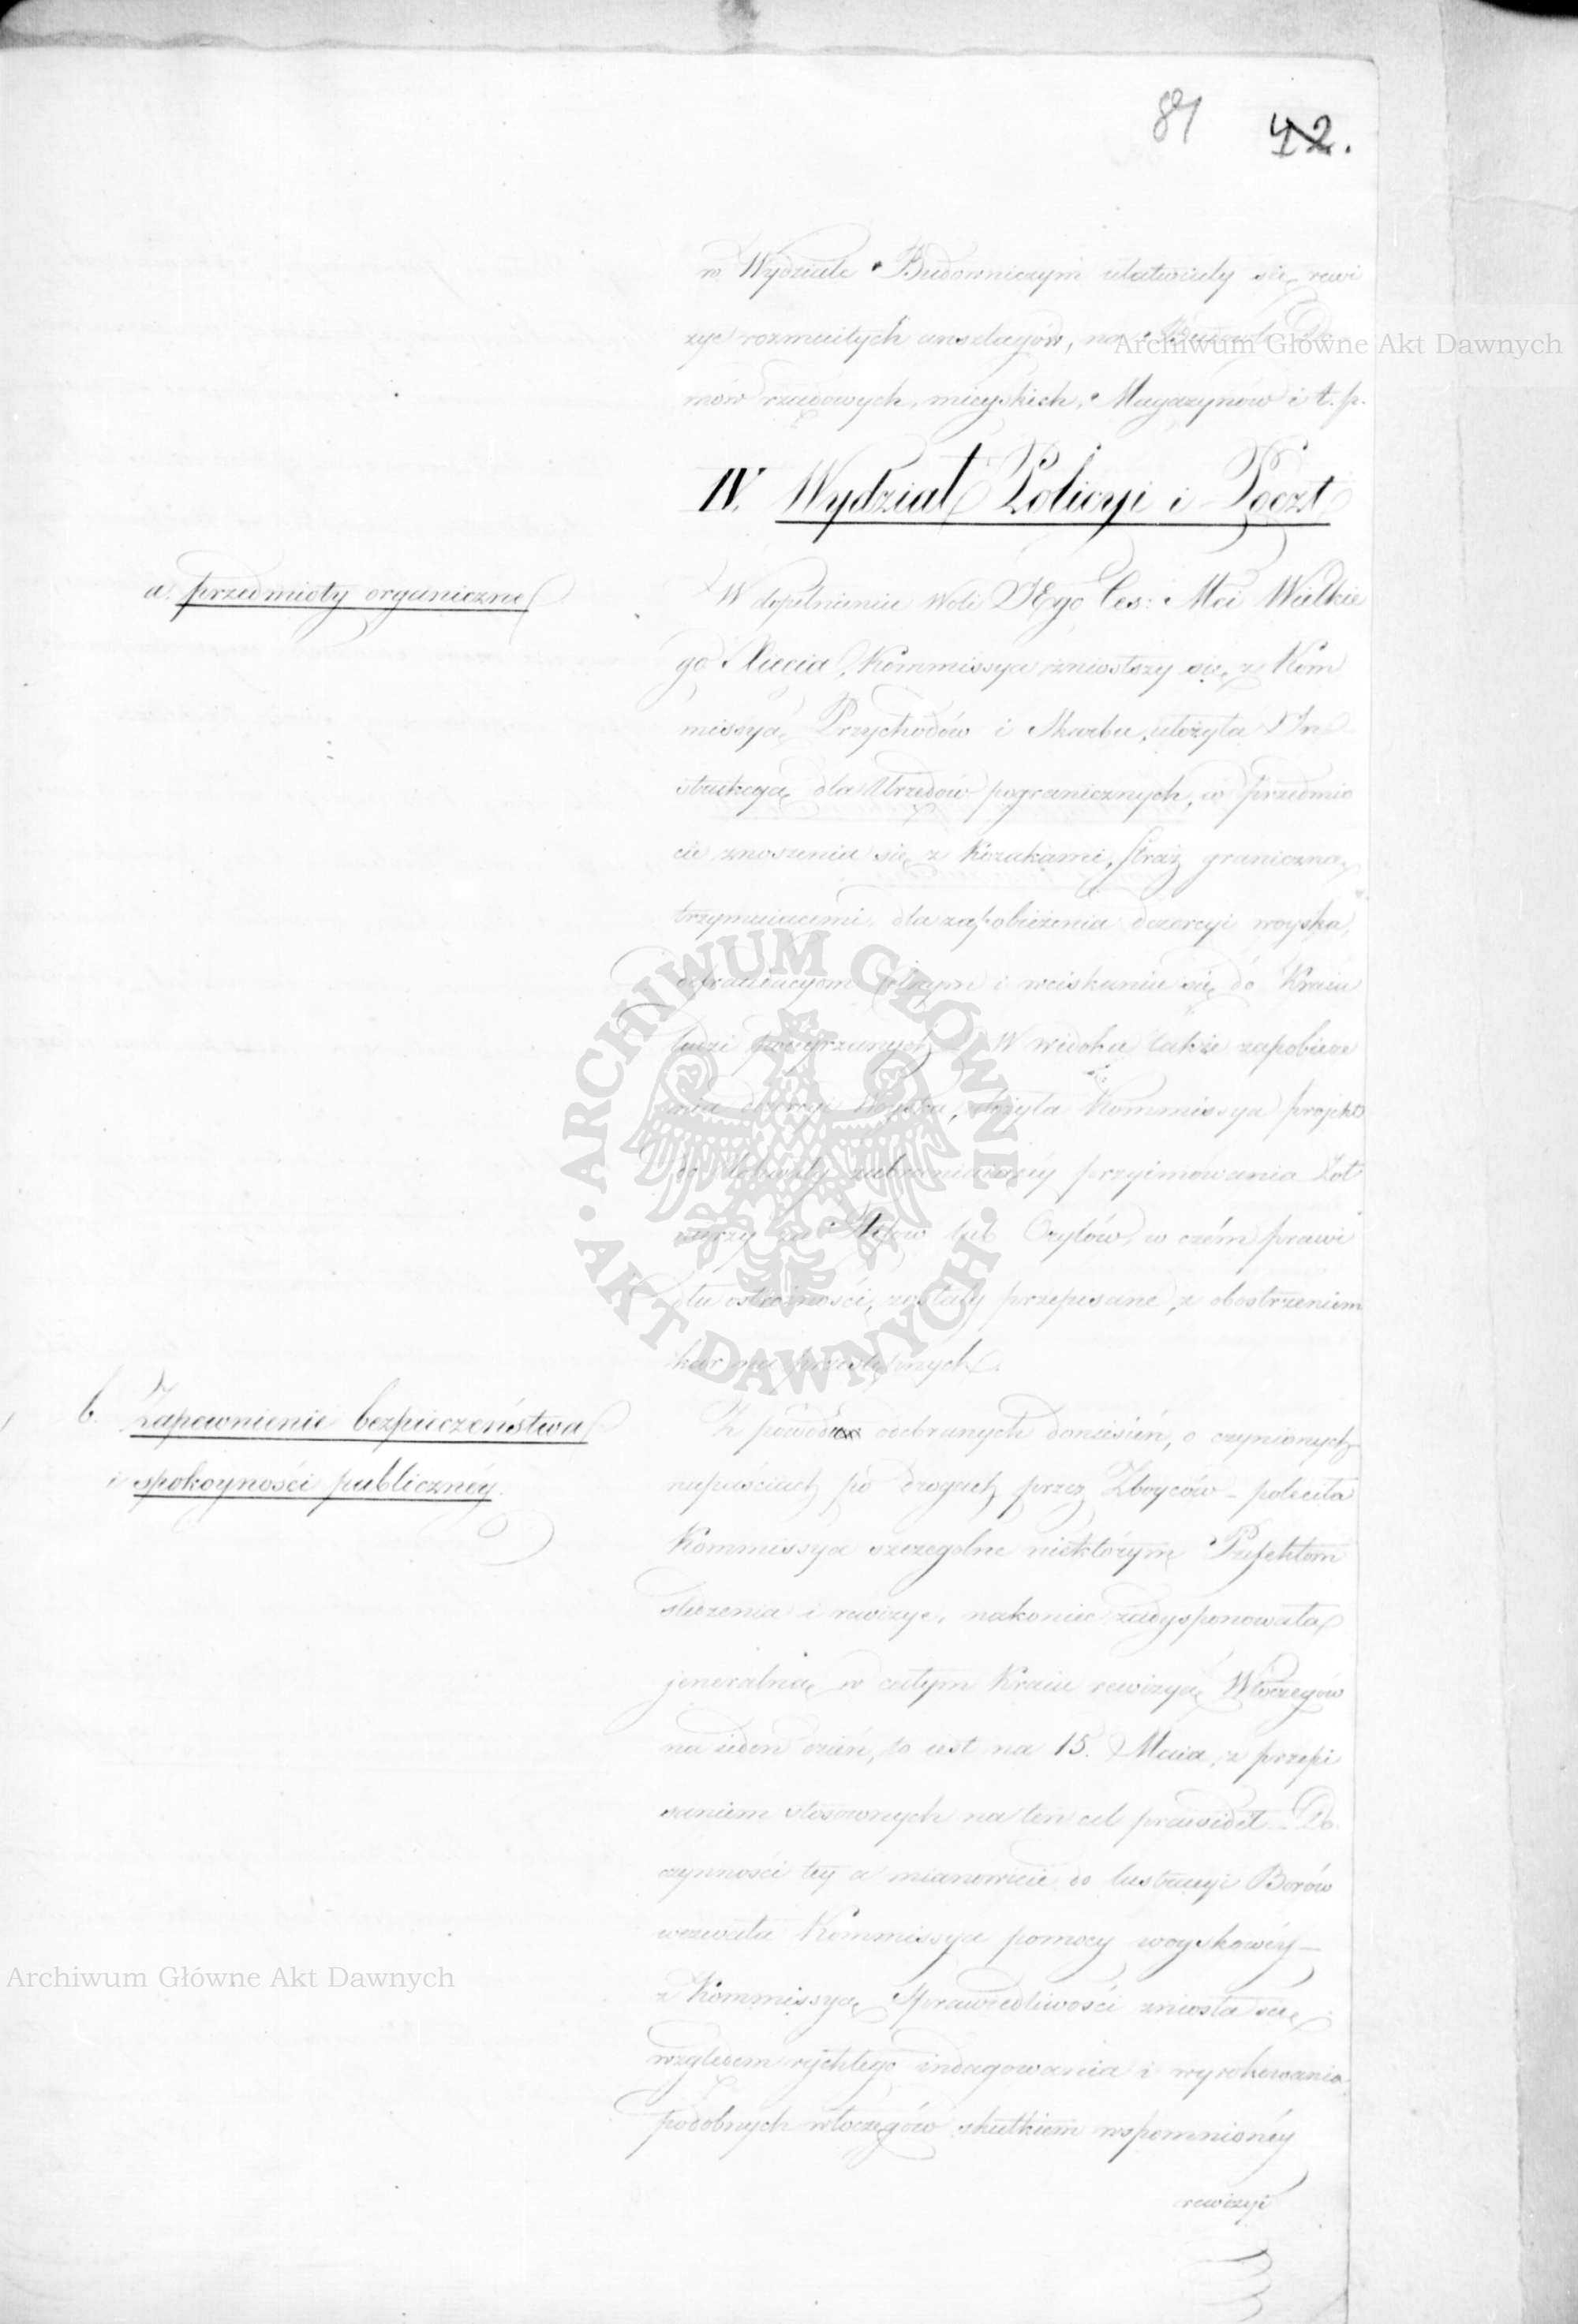 81 42.
w Wydziale Budowniczym ułatwiały się rewi
zye rozmaitych anszlagów, na
mów rządowych, mieyskich, Magazynów i t. p.
IV. Wydział Policyi i Poczt
a. przedmioty organiczne
W dopełnieniu Woli JEgo Ces: Mci Wielkie
go Xięcia, Kommissya zniosłszy się z Kom
missyą Przychodów i Skarbu, ułożyła In
strukcyą dla Urzędów pogranicznych, w przedmio
cie znoszenia się z Kozakami, straż graniczną
trzymaiącemi, dla zapobieżenia dezercyi woyska,
defraudacyom celnym i wciskaniu się do Kraiu
ludzi podeyrzanych W widoku także zapobieże
nia dezercyi Woyska, ułożyła Kommissya projekt
do Uchwały zabraniaiącéy przyimowania Żoł
nierzy za lub w czém prawi
dła ostrożności, zostały przepisane, z obostrzeniem
kar na przestępnych.
b. Zapewnienie bezpieczeństwa
i spokoyności publicznéy.
Z powodu odebranych doniesień, o czynionych
napaściach po drogach przez Zboyców - poleciła
Kommissya szczególne niektórym Prefektom
śledzenia i rewizye, nakoniec zadysponowała
jeneralną w całym Kraiu rewizyą Włóczęgów
na ieden dzień, to iest na 15. Maia, z przepi
saniem stosownych na ten cel prawideł - Do
czynności téy a mianowicie do lustracyi Borów
wezwała Kommissya pomocy woyskowéy -
z Kommissyą Sprawiedliwości zniosła się
względem rychłego indagowania i wyrokowania
podobnych włóczęgów skutkiem wspomnionéy
rewizyi
Archiwum Główne Akt Dawnych
Archiwum Główne Akt Dawnych
ARCHIWUM GŁÓWNE AKT DAWNYCH